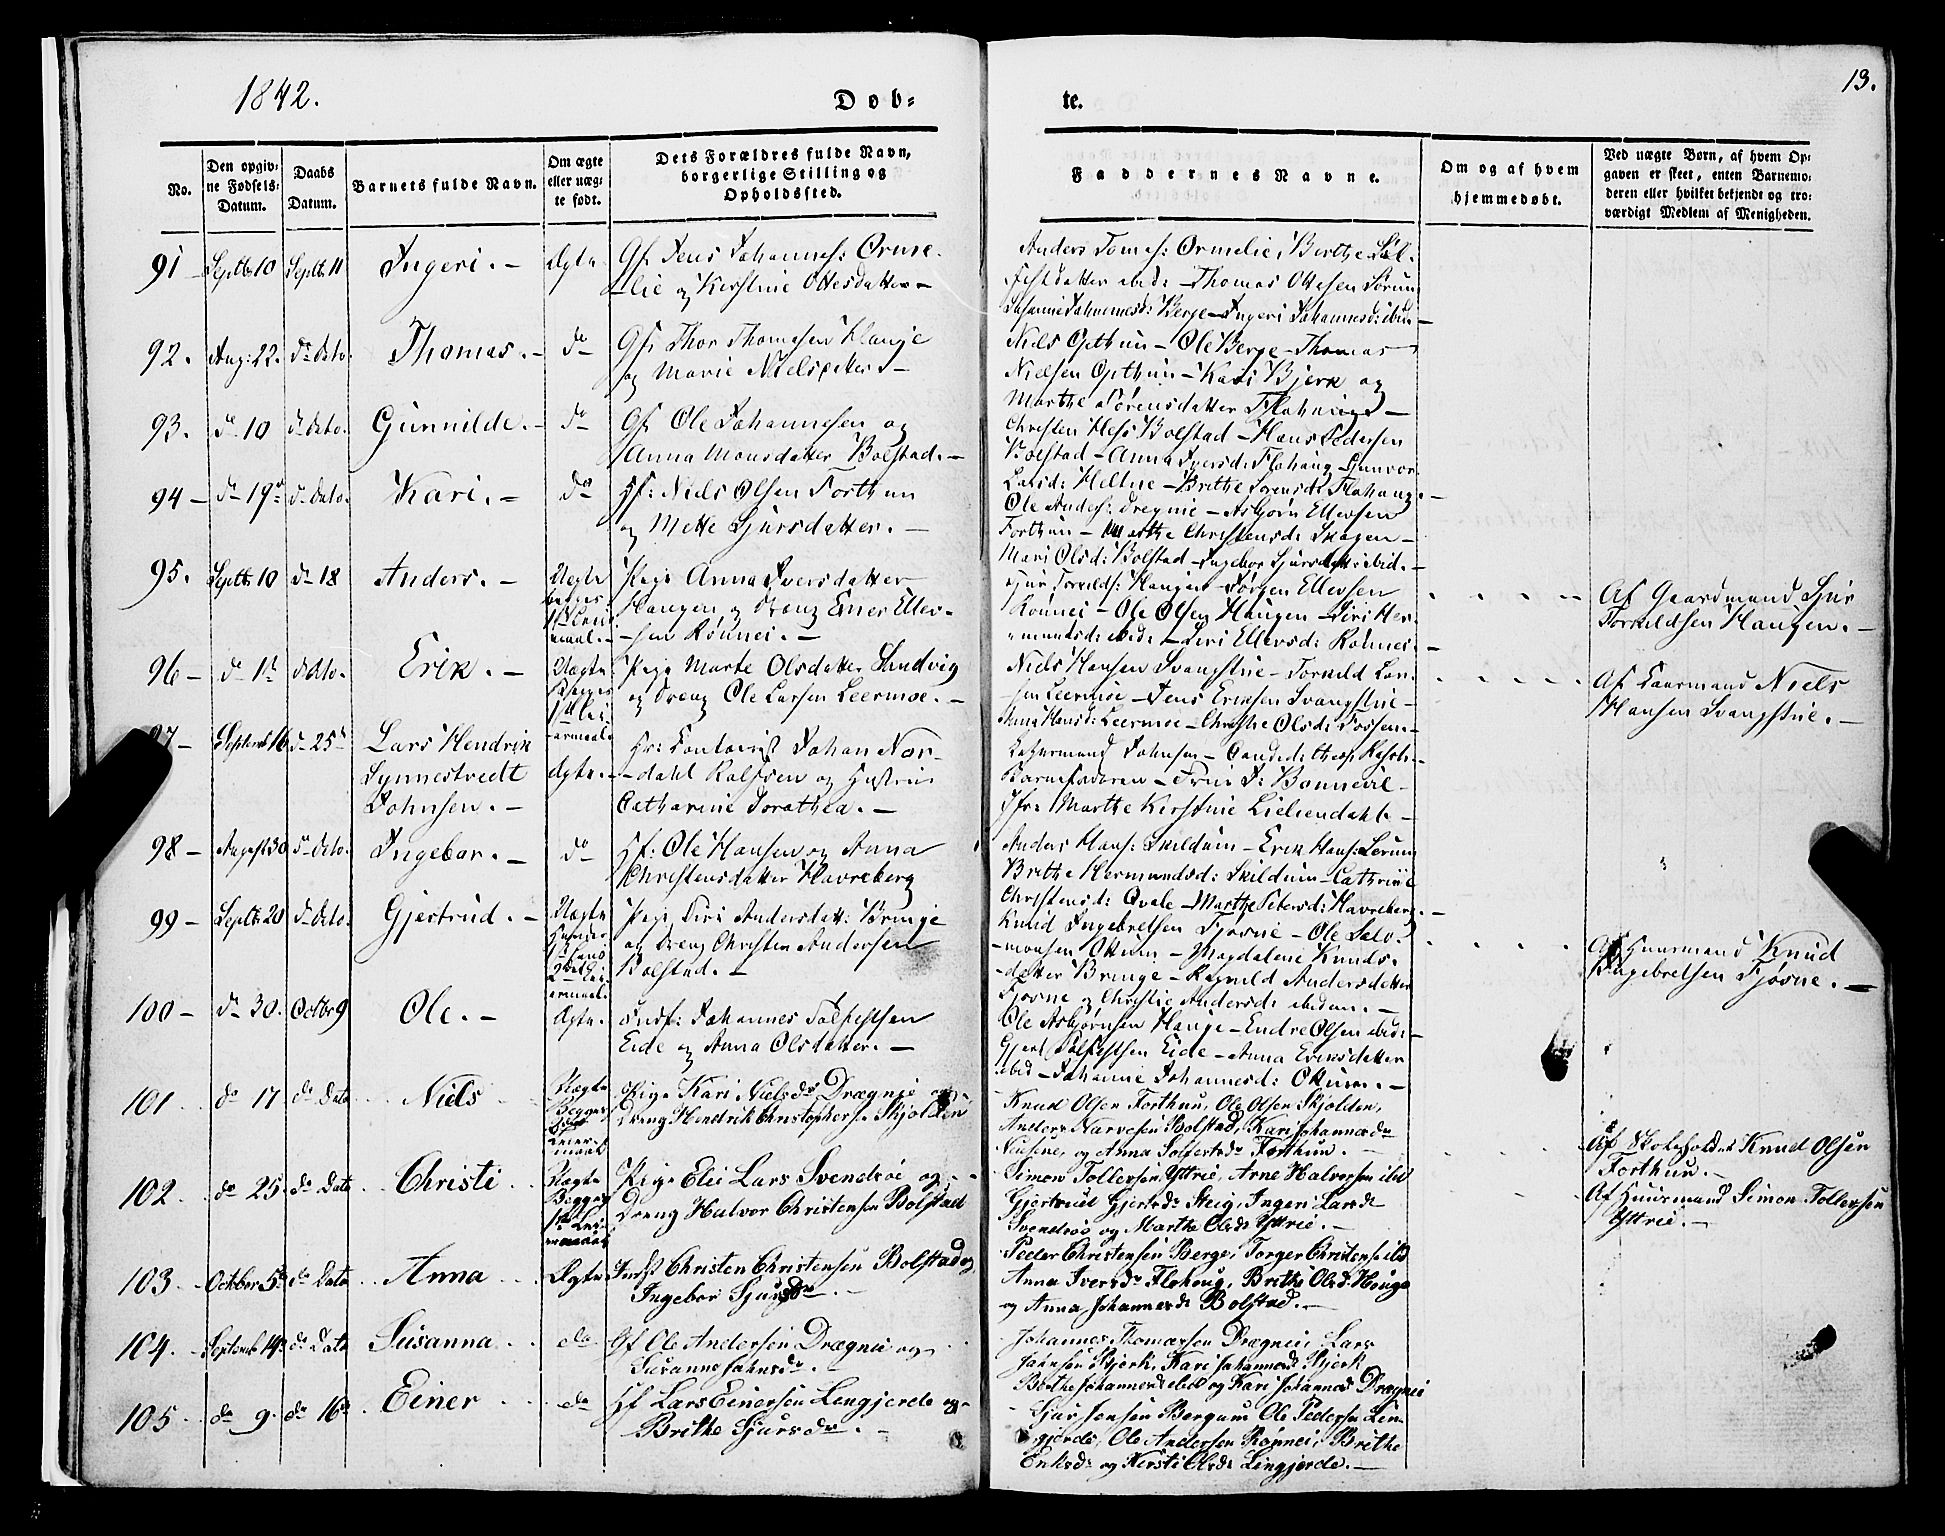 1842.
Döb-
te.
13.
No.
Den opgiv-
ne Fødsels-
Datum.
Daabs
Datum.
Barnets fulde Navn.
Om ægte
eller uæg-
te født.
Dets Forældres fulde Navn,
borgerlige Stilling og
Opholdssted.
Faddernes Navne.
Om og af hvem
hjemmedøbt.
Ved uægte Børn, af hvem Op-
gaven er skeet, enten Barnemo-
deren eller hvilket bekjendt og tro-
værdigt Medlem af Menigheden.
91 - Septbr 10 Septbr 11 Ingeri. - Ægte Gf. Jens Johannes: Orme-
-lie og Kerstine Ottesdatter -
Anders Tomes: Ormelie, Berthe
datter ibid: - Thomas Ottesen Sørum
Johannesd: Berge - Ingeri Johannesd: ibid: -
92. Aug: 22. do dato. Thomas. - do Gf. Thor Thomesen Hauge
og Marie Nielsdatter -
Niels Opthun - Ole Berge - Thomas
Nielsen Opthun - Kari Bjerk og
Marthe Sørensdatter Flahaug -
93. do 10 do dato. Gunnilde. - do Gf. Ole Johannesen og
Anna Monsdatter Bolstad. -
Christen Hess Bolstad - Hans Pedersen
Bolstad - Anna Iversd: Flahaug - Gunvor
Larsd: Heltne - Brithe Sørensd: Flahaug. -
94 - do 19de do dato. Kari. - do Hf: Niels Olsen Forthun
og Mette Sjursdatter. -
Ole Andes: Dregnie - Asbjørn Ellevsen
Forthun - Marthe Christensd: Skagen -
Mari Olsd: Bolstad - Ingebor Sjursdatter ibid. -
95. Septbr 10 do 18 Anders. - Uægte
begges
1ste
maal. -
Pige Anna Iversdatter
Haugen og Dreng Einer Ellev-
-sen Rønnei. -
Sjur Torkilds: Haugen - Jørgen Ellevsen
Rønnei - Ole Olsen Haugen - Siri Her-
-mundsd: ibid: - Siri Ellevsd: Rønnei. -
Af Gaardmand Sjur
Torkildsen Haugen. -
96 - do 1ste do dato. Erik. - Uægte
begges
1ste Lei-
ermaal -
Pige Marte Olsdatter Sandvig
og Dreng Ole Larsen Leermoe. -
Niels Hansen Svangstue - Torkild Lar-
-sen Leermoe - Jens Eriksen Svangstue -
Anna Hansd: Leermoe - Christie Olsd: Fossen. -
Af Huusmand Niels
Hansen Svangstue. -
97 - Septemb 16 do 25de Lars Hendrik
Synnestvedt
Johnsen. -
Ægte. - Hr: Contorist Johan Nor-
-dahl Rolfsen og Hustrue
Catharine Dorathea. -
Johnsen - Candidt theop
Barnefaderen - Frue D: Bonnevie -
Jfr: Marthe Kerstine Lieliendahl. -
98 - August 30 do dato. Ingebor. - do Hf: Ole Hansen og Anna
Christensdatter Havreberg
Anders Hans: Skildum - Erik Hans: Lerum
Brithe Hermundsd: Skildum - Cathrine
Christensd: Qvale - Marthe Petersd: Havreberg. -
99 - Septbr 20 do dato. Gjertrud. - Uægte
Pige Siri Andersdatt: Bringe
og Dreng Christen Andersen
Bolstad. -
Knud Ingebretsen Fjøsne - Ole Salo-
-monsen Ottum - Magdalene Knuds-
-datter Bringe - Ragnild Andersdatter
Fjøsne og Christie Andersd: ibidem. -
Af Huusmand Knud
Ingebretsen Fjøsne. -
100 - do 30. Octbr 9 Ole. - Ægte. Indf: Johannes Tolfestsen
Eide og Anna Olsdatter. -
Ole Asbjørnsen Hauge - Endre Olsen ibid: -
Gjert Tolfestsen Eide - Anna Eriksdatter
ibid - Johanne Johannesd: Ottum. -
101 do 17 do Dato Niels Uægte
Begges
Leier-
maal
Pige Kari Nielsdr Drægnie og
Dreng Hendrik Christophersen Skjolden
Knud Olsen Forthun, Ole Olsen Skjolden,
Anders Narvesen Bolstad, Kari Johannesdr
og Anna Solfestdr Forthun. -
Af Knud Olsen
Forthun. -
102 do 25. do Dato Christi Uægte
Begges
1ste Lei-
ermaal
Pige Elie Lars Svendsøe og
Dreng Halvor Christensen Bolstad
Simon Tollefsen Yttrie, Arne Halvorsen ibid
Gjertrud Gjertsdr Steig, Ingeri Larsdr
Svendsøe og Marthe Olsdr Yttrie. -
Af Huusmand Simon Tollefsen
Yttrie. -
103 October 5te do Dato Anna Ægte Indst Christen Christensen Bolstad og
Ingebor Sjursdr. -
Peder Christensen Berge, Torger Christensen ibid
Anna Iversdr Flahaug, Brithe Olsd: Houge
og Anna Johannesdr Bolstad. -
104. Septemb 14de do Dato Susanna do Gf Ole Andersen Drægnie og
Susanne Johnsdr.
Johannes Thomæssen Drægnie, Lars
Johnsen Bjerk, Kari Johannesdr Bjerk
Berthe Johannesdr ibid og Kari Johannesd Drægnie
105 do 9. do 16de Einer do Hf Lars Einersen Lengjerde og
Brithe Sjursdr. -
Sjur Jensen Bergum Ole Pedersen Len-
gjerde, Ole Andersen Rønnei, Brithe
Eriksdr og Kersti Olsdr Lengjerde. -